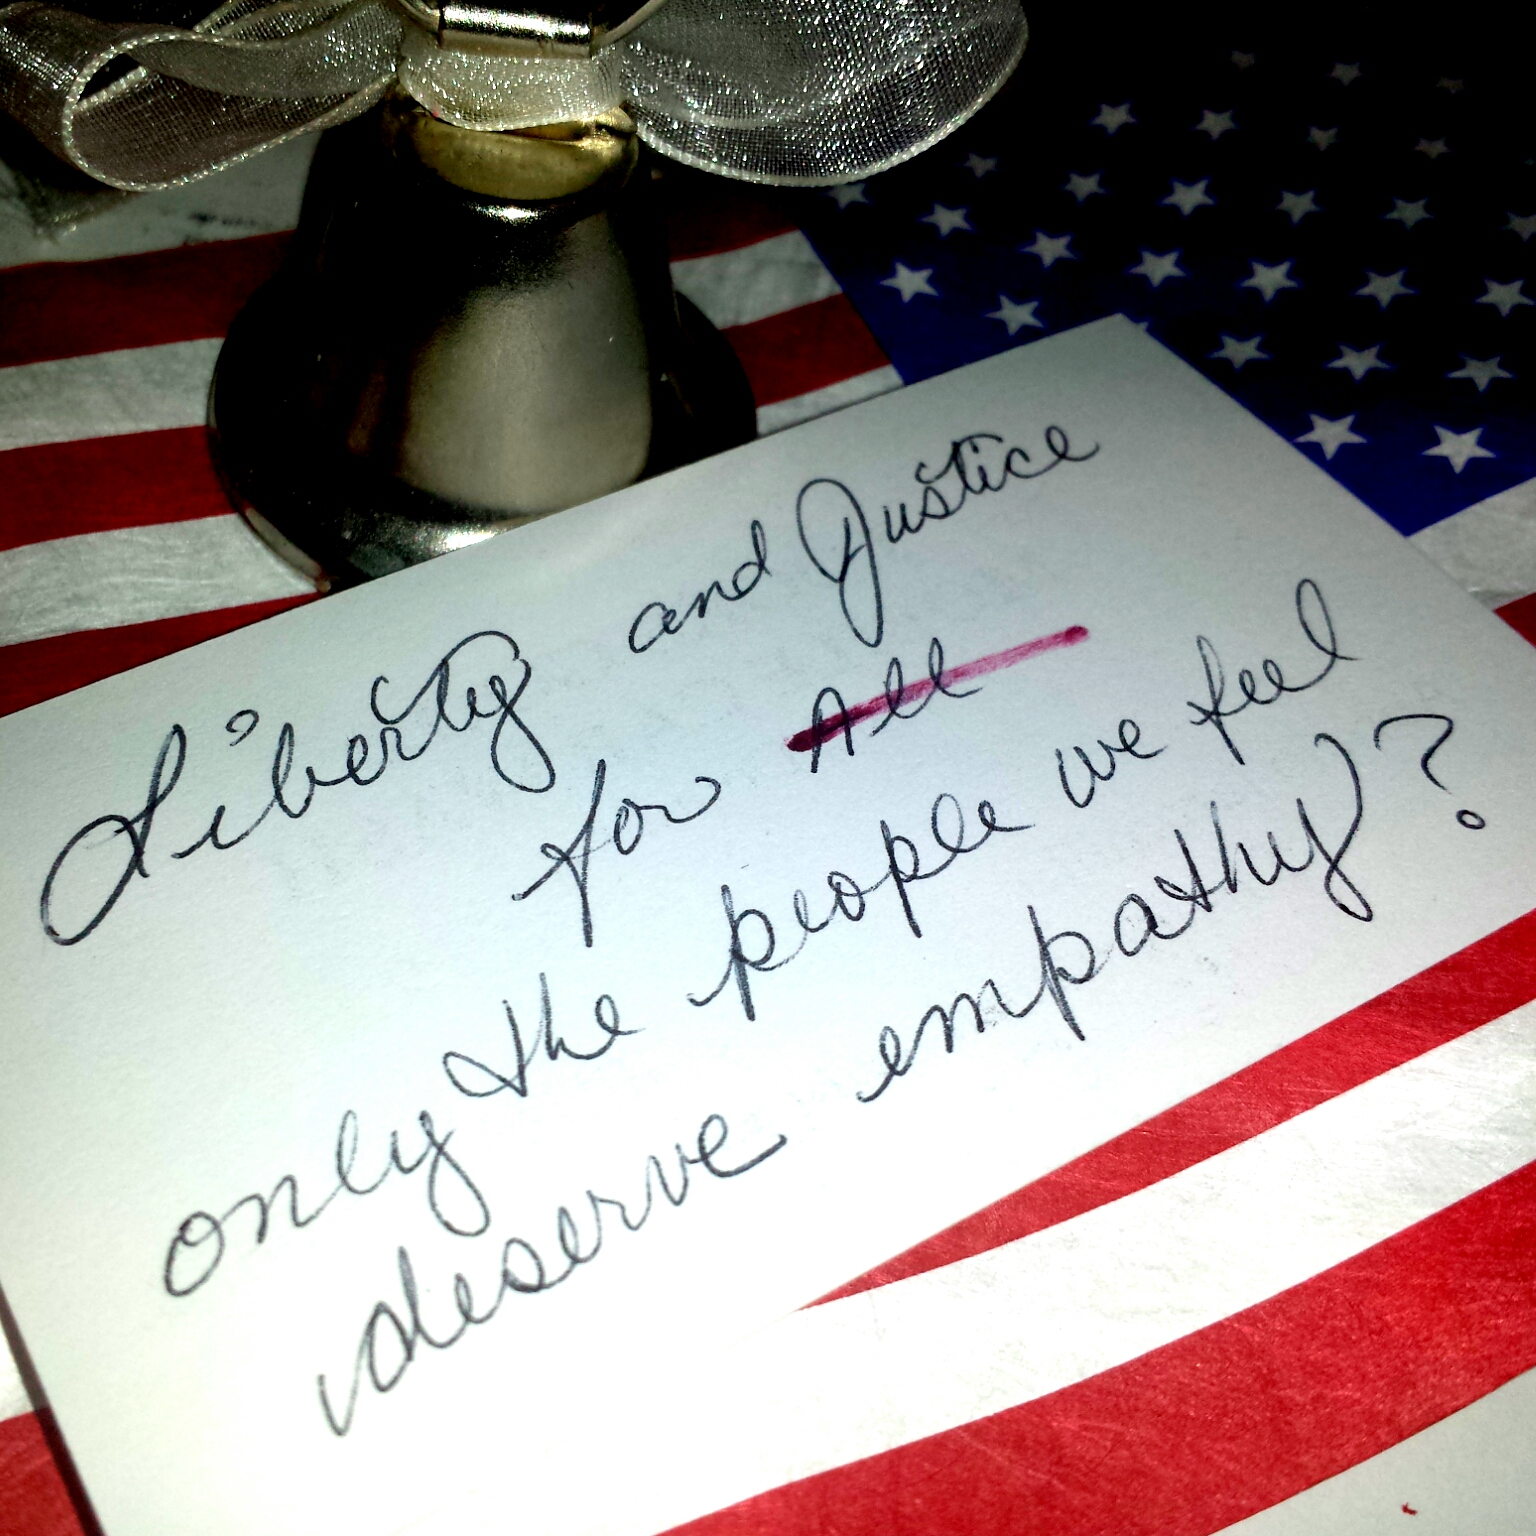 Liberty and Justice
for All
only the people we feel
deserve empathy?